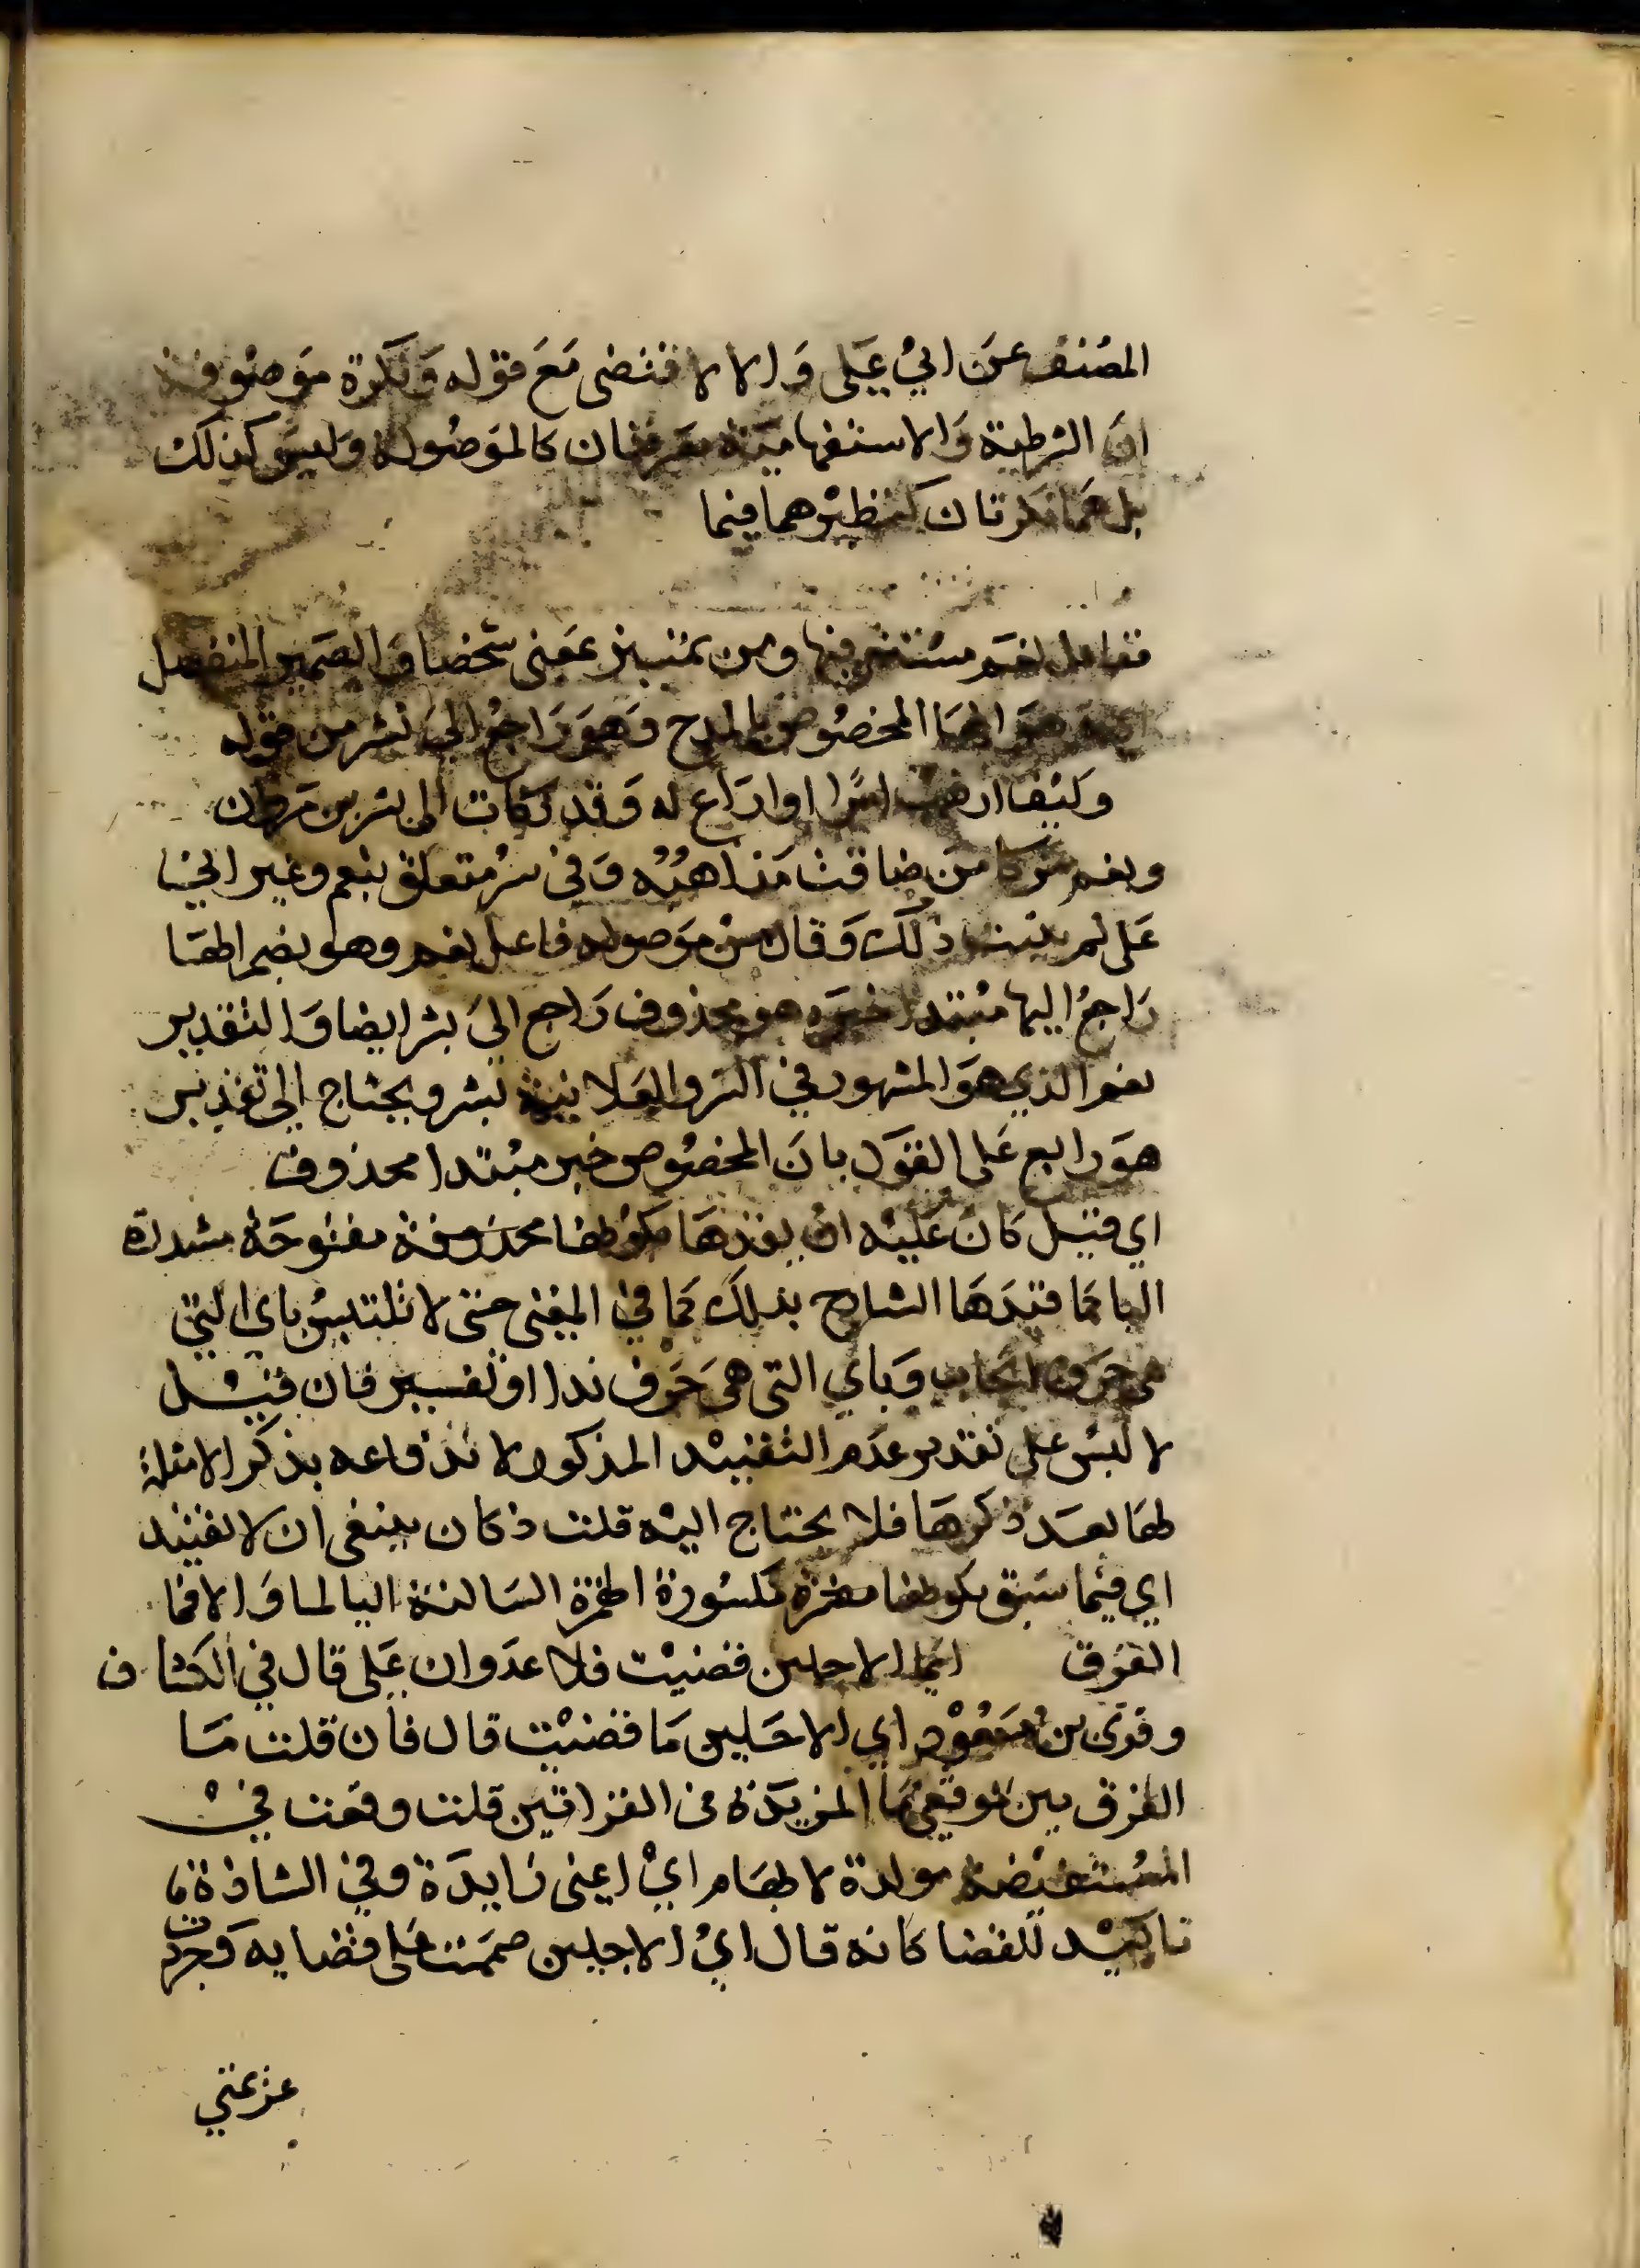 المصنف عن ابي على والا لاقتضى مع قوله ونكرة موصوفة
ان الشرطية والاستفهامية معرفتان كالموصولة وليس كذلك
بل هما نكرتان كنظيرهما فيما
ففاعل نعم مستتر فيها ومن تمييز بمعنى شخصا والضمير المنفصل
هو المخصوص بالمدح وهو راجع الى بشر من قوله
وكيف ارهب امرا او اراع له وقد زكات الى بشر بن مروان
ونعم مزكا من ضاقت مذاهبه وفي سر متعلق بنعم وغير ابي
على لم يثبت ذلك وقال من موصولة فاعل نعم وهو بضم الها
راجع اليها مبتدا خبره هو محذوف راجع الى بشر ايضا والتقدير
نعم الذي هو المشهور في السر والعلانية بشر ويحتاج الى تقدير
هو رابع على القول بان المخصوص خبر مبتدا محذوف
اي قيل كان عليه ان يقيدها بكونها مفتوحة مشددة
اليا كما قيدها الشارح بذلك كما في المغني حتى لا تلتبس باي التي
هي حرف ايجاب وباي التي هي حرف ندا او تفسير فان قيل
لا لبس على تقدير عدم التقييد المذكور لاندفاعه بذكر الامثلة
لها بعد ذكرها فلا يحتاج اليه قلت فكان ينبغي ان لا يقيد
اي فيما سبق بكونها مكسورة الهمزة الساكنة اليا لما والا فما
الفرق ايما الاجلين قضيت فلا عدوان على قال في الكشاف
وقرى بن مسعود اي الاجلين ما قضيت قال فان قلت ما
الفرق بين موقعي ما المزيدة في القراتين قلت وقعت في
المستفيضة موكدة لابهام اي اعنى زايدة وفي الشاذة
تاكيد للقضا كانه قال اي الاجلين صممت على قضايه وجردت
عزيمتي